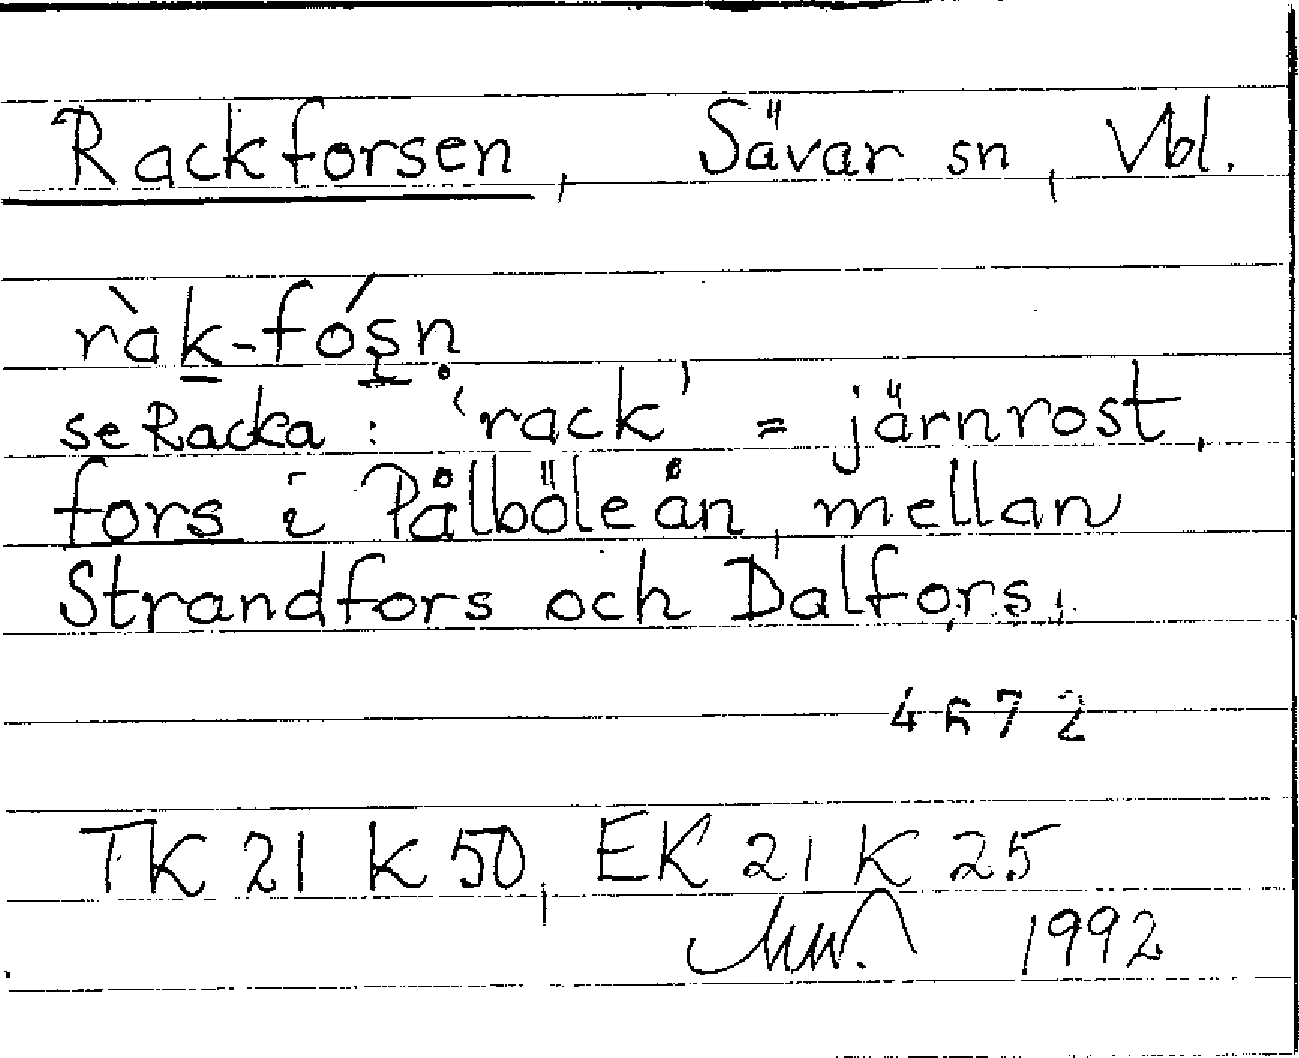 Rackforsen, Sävar sn, Vbl.
ràk-fóşn̥
se Racka: 'rack' = järnrost.
fors i Pålböleån, mellan
Strandfors och Dalfors.
4672
TK 21 K 50, EK 21 K 25
1992